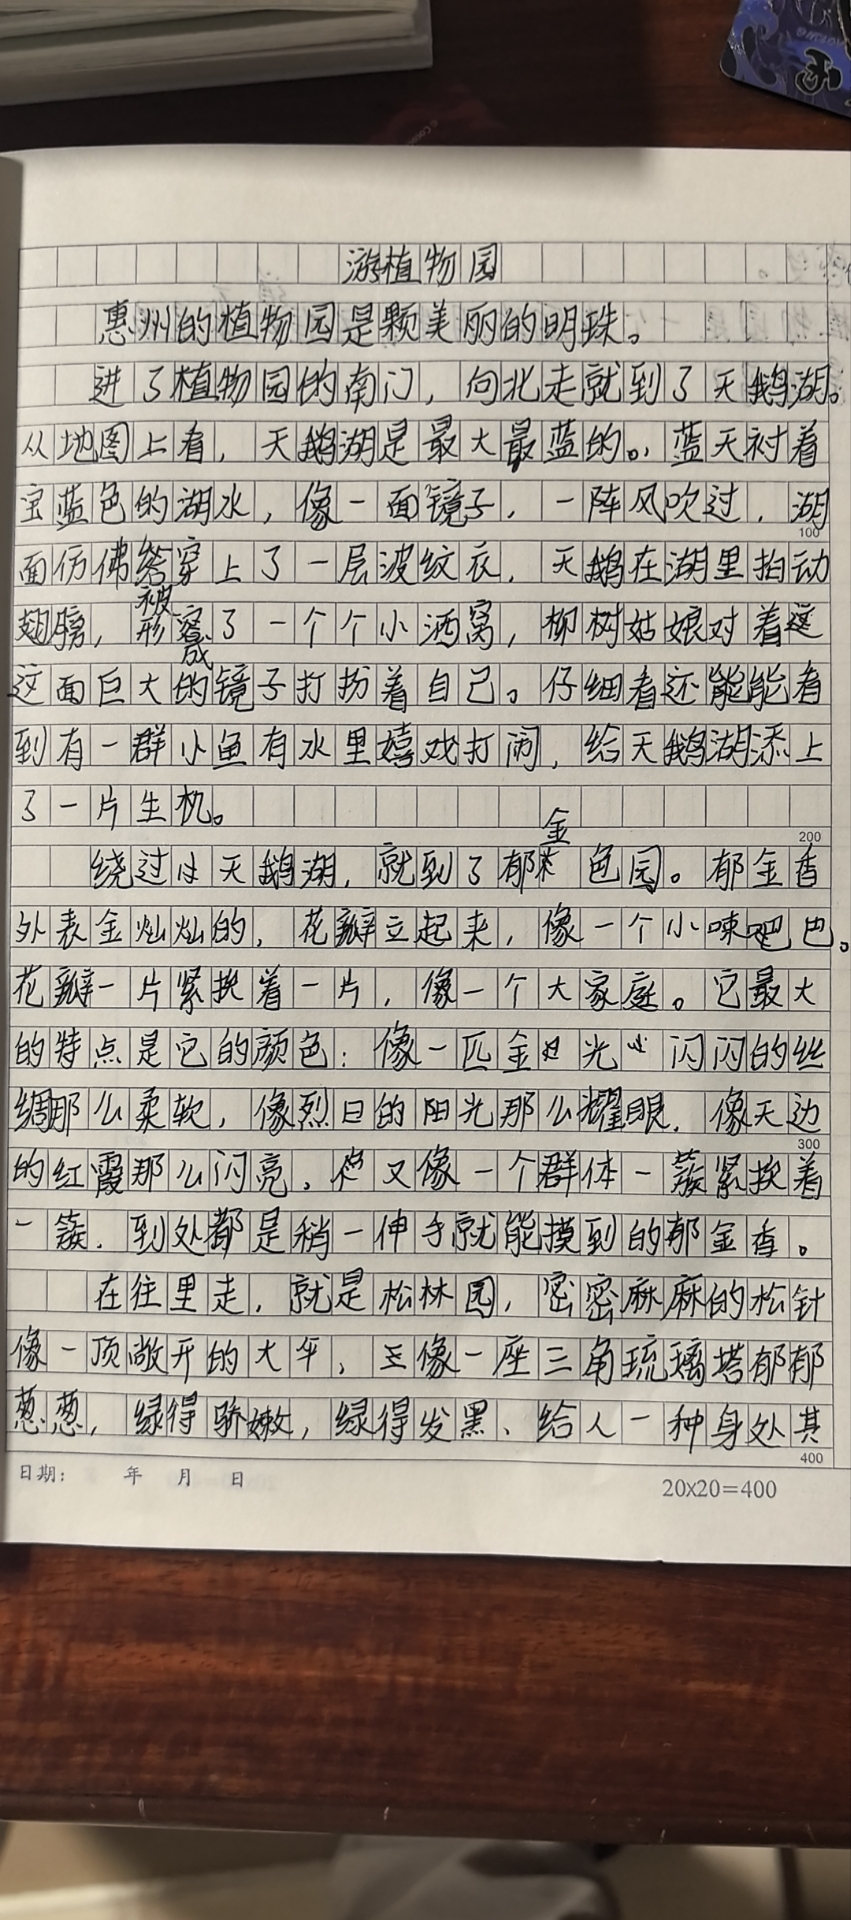 游植物园
惠州的植物园是颗美丽的明珠。
进了植物园的南门，向北走就到了天鹅湖。
从地图上看，天鹅湖是最大最蓝的。，蓝天衬着
宝蓝色的湖水，像一面镜子，一阵风吹过，湖
100
面仿佛穿上了一层波纹衣，天鹅在湖里拍动
被
翅膀，形了一个个小酒窝，柳树姑娘对着
成
这面巨大的镜子打扮着自己。仔细看还能能看
到有一群小鱼有水里嬉戏打闹，给天鹅湖添上
了一片生机。
金
200
绕过天鹅湖，就到了郁色园。郁金香
外表金灿灿的，花瓣立起来，像一个小喇吧巴。
花瓣一片紧挨着一片，像一个大家庭。它最大
的特点是它的颜色：像一匹金光闪闪的丝
绸那么柔软，像烈日的阳光那么耀眼，像天边
300
的红霞那么闪亮。又像一个群体一蔟紧挨着
一蔟．到处都是稍一伸手就能摸到的郁金香。
在往里走，就是松林园，密密麻麻的松针
像一顶敞开的大伞，像一座三角琉璃塔郁郁
葱葱，绿得骄嫩，绿得发黑、给人一种身处其
400
日期： 年 月 日
20x20=400